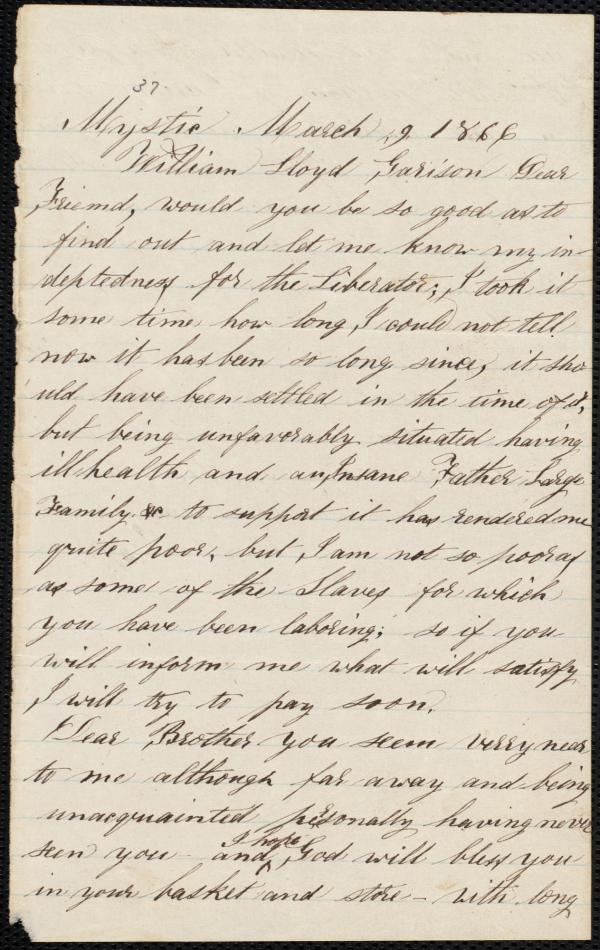 37
Mystic March 9 1866
William Lloyd Garison Dear
Friend, would you be so good as to
find out and let me know my in-
deptedness for the Liberator; I took it
some time how long I could not tell
now it has been so long since, it sho
uld have been settled in the time of it,
but being unfaverably situated having
ill health and an Insane Father Large
Family &c to support it has rendered me
quite poor, but I am not so poor as
as some of the Slaves for which
you have been laboring; so if you
will inform me what will satisfy
I will try to pay soon.
Dear Brother you seem verry near
to me although far away and being
unacquainted personally having never
seen you and I hope God will bless you
in your basket and store - with long